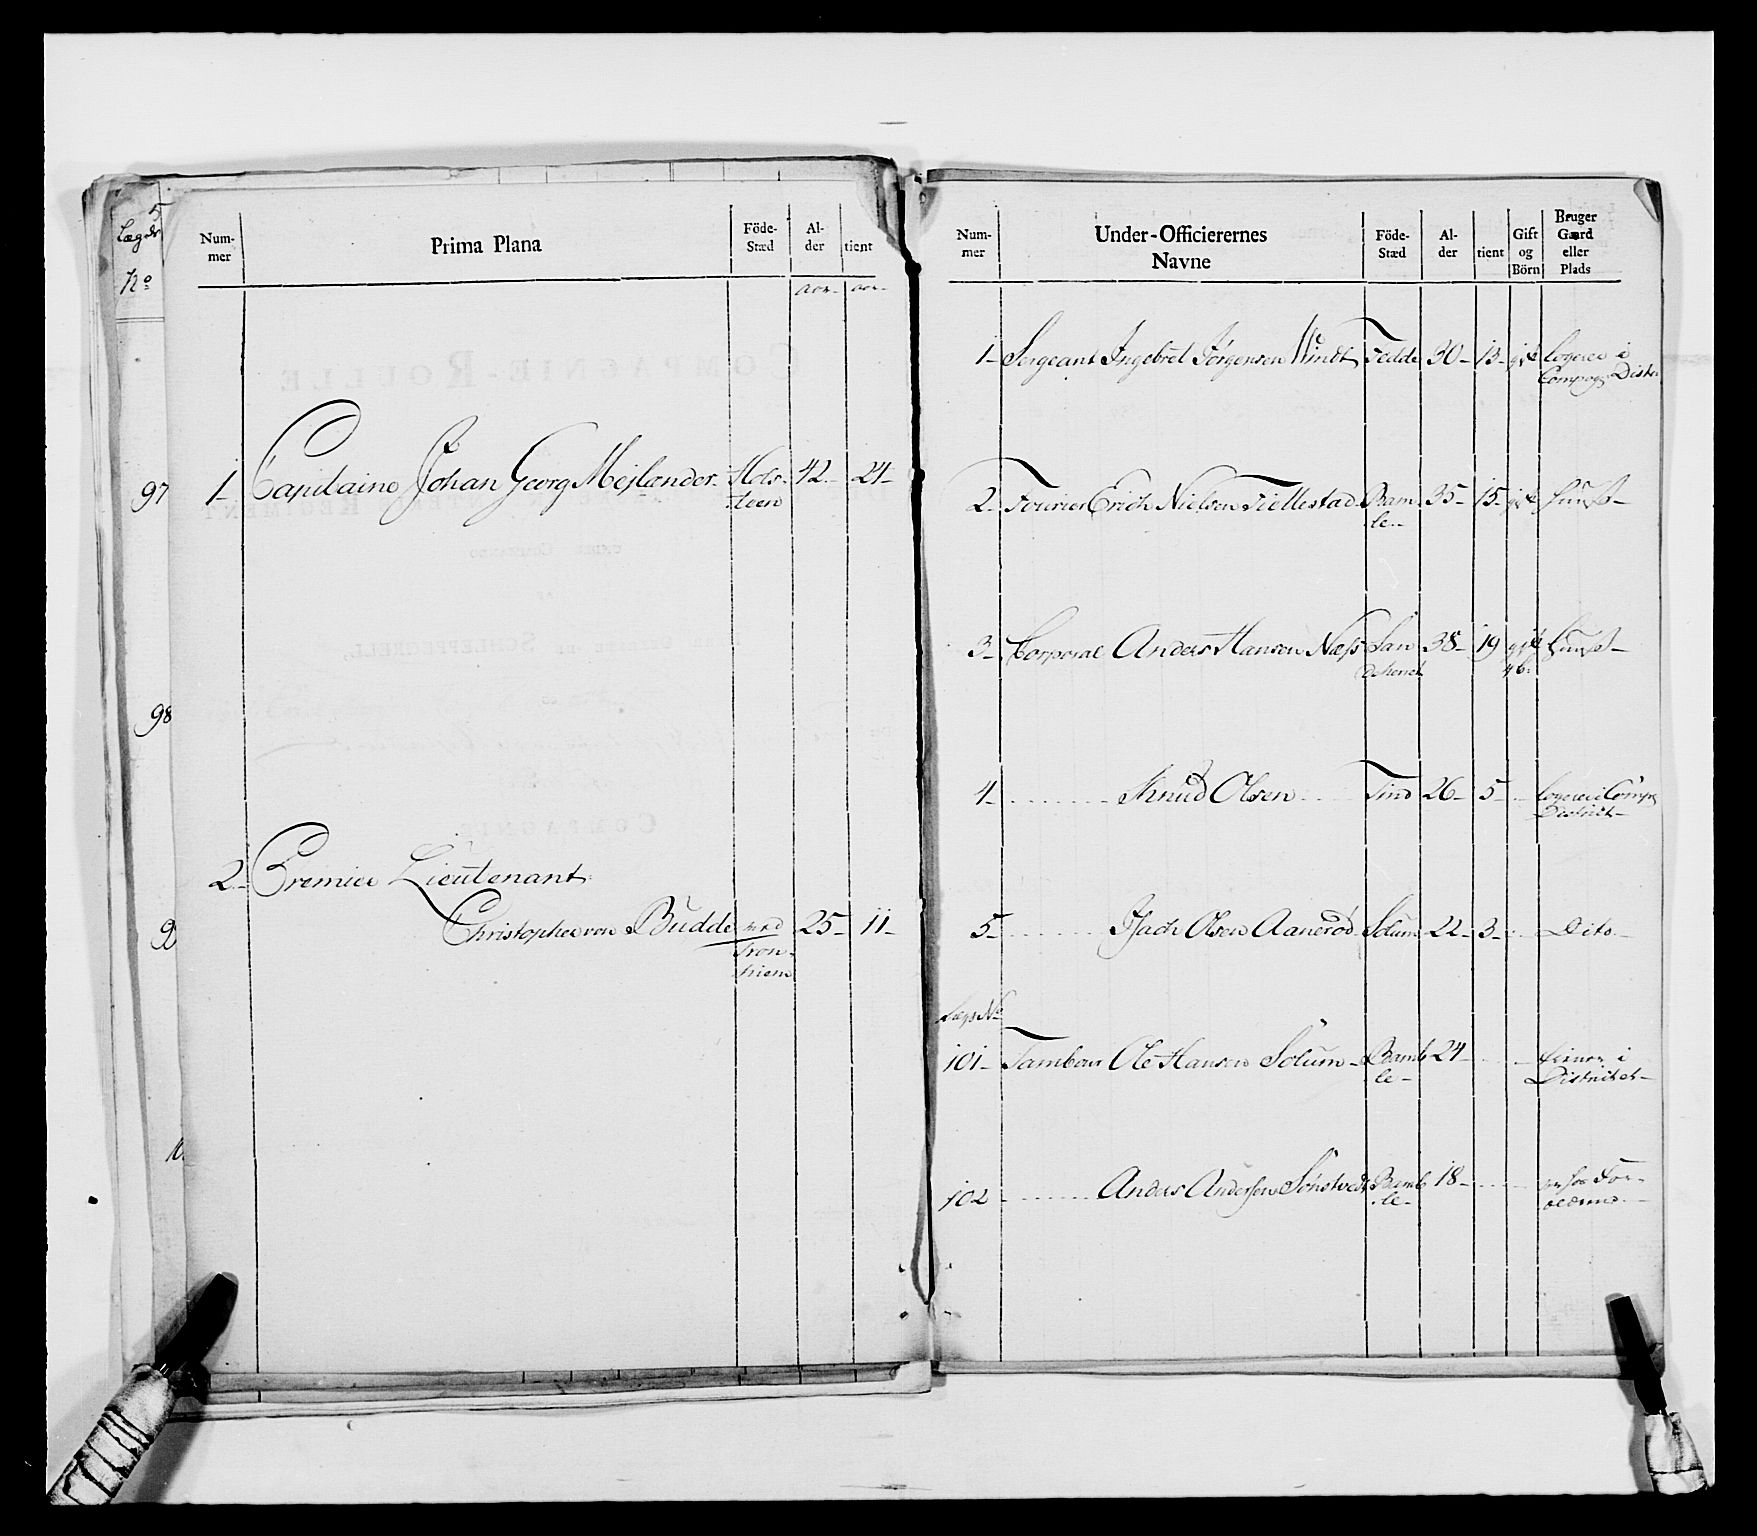 5
Lægds
No
97
98
9
10
Num-
mer
Prima Plana
Föde-
Stæd
Al-
der
tient
aar aar
1 Capitaine Johan Georg Mejlænder Hols- 42 24
steen
2 Premier Lieutenant
Christopher von Budde 25 11
Tron-
hiem
Num-
mer
Under-Officierernes
Navne
Föde-
Stæd
Al-
der
tient
Gift
og
Börn
Bruger
Gaard
eller
Plads
1 Sergeant Ingebret Jørgensen Windt 30 13 gift Logerer i
Compag: Distr:
2 Fourier Erich Nielsen Fiellestad Bam- 35 15 gift Huuß
le
3 Corporal Anders Hansen Næss San- 38 19 gift Huuß
deherret 4 b:
4 Knud Olsen Tind 26 5 Logerer i Comp:
District
5 Isach Olsen Aanerød Solum 22 3 Dito
Lægs No
101 Tambour Ole Hansen Solum Bamb- 24 tiener i
le Districtet
102 Anders Andersen Sønstvedt Bamb- 18 er hos For-
le ældrene